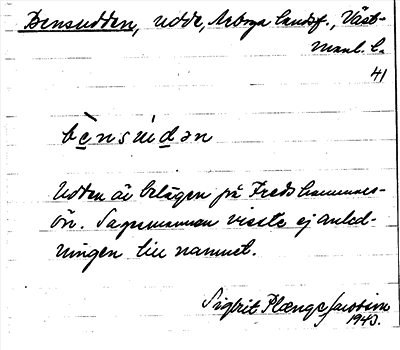 Bensudden, udde, Arboga landsf., Väst-
manl. l.
41
bènsúdən
Udden är belägen på Fredshammars-
ön. Sagesmannen visste ej anled-
ningen till namnet.
Sigbrit Plænge Jacobson
1943.